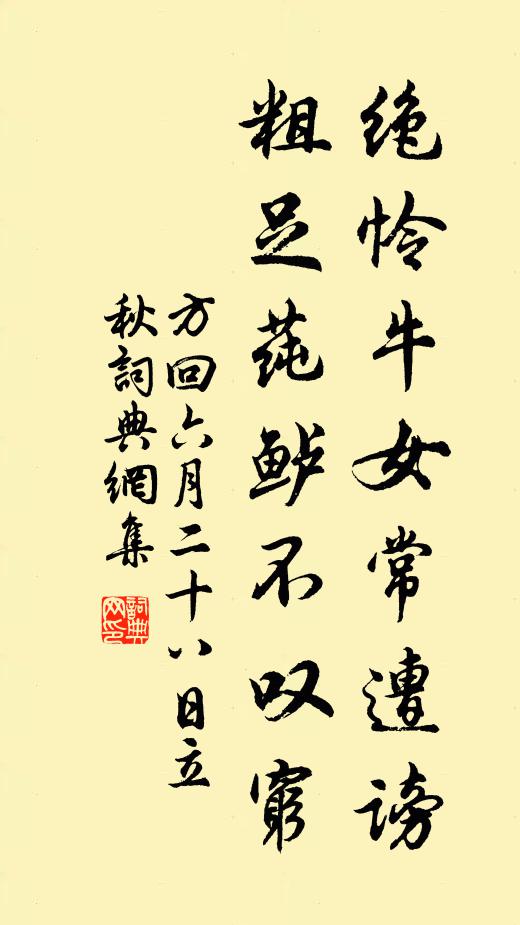 绝怜牛女常遭谤
粗足莼鲈不叹穷
方回六月二十八日立
秋詞典網集
詞典网印